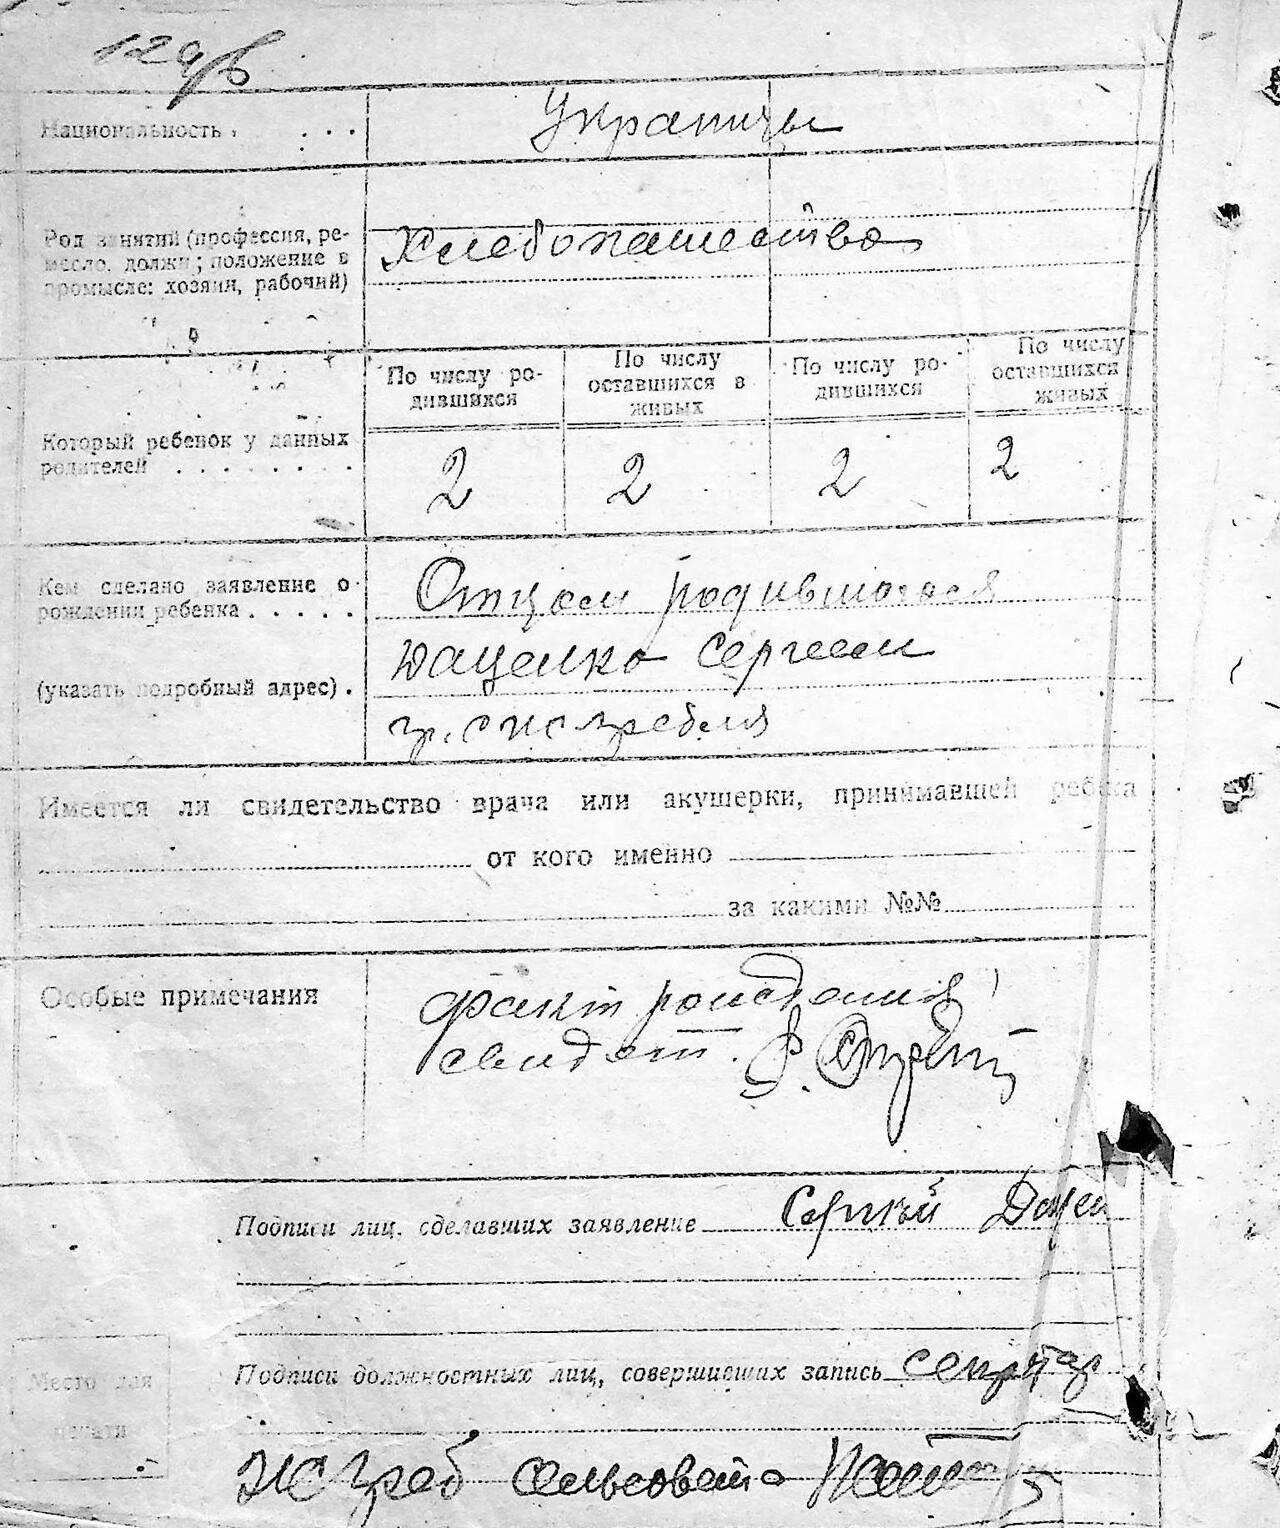 Национальность . . . .
Украинцы
Род занятий (профессия, ре-
месло, должн; положение в
промысле: хозяин, рабочий)
Хлебопашество
По числу ро-
дившихся
По числу
оставшихся в
живых
По числу ро-
дившихся
По числу
оставшихся
живых
Который ребенок у данных
родителей . . . . . . . .
2 2 2 2
Кем сделано заявление о
рождении ребенка . . . . .
(указать подробный адрес) .
Отцом родившагося
Даценко Сергеем
Имеется ли свидетельство врача или акушерки, принимавшей ребенка
от кого именно
за какими №№
Особые примечания
факт рождения
свидет.
Подписи лиц, сделавших заявление Сергій Дацен
Подписи должностных лиц, совершивших запись секретар
Место для
печати
сельсовета